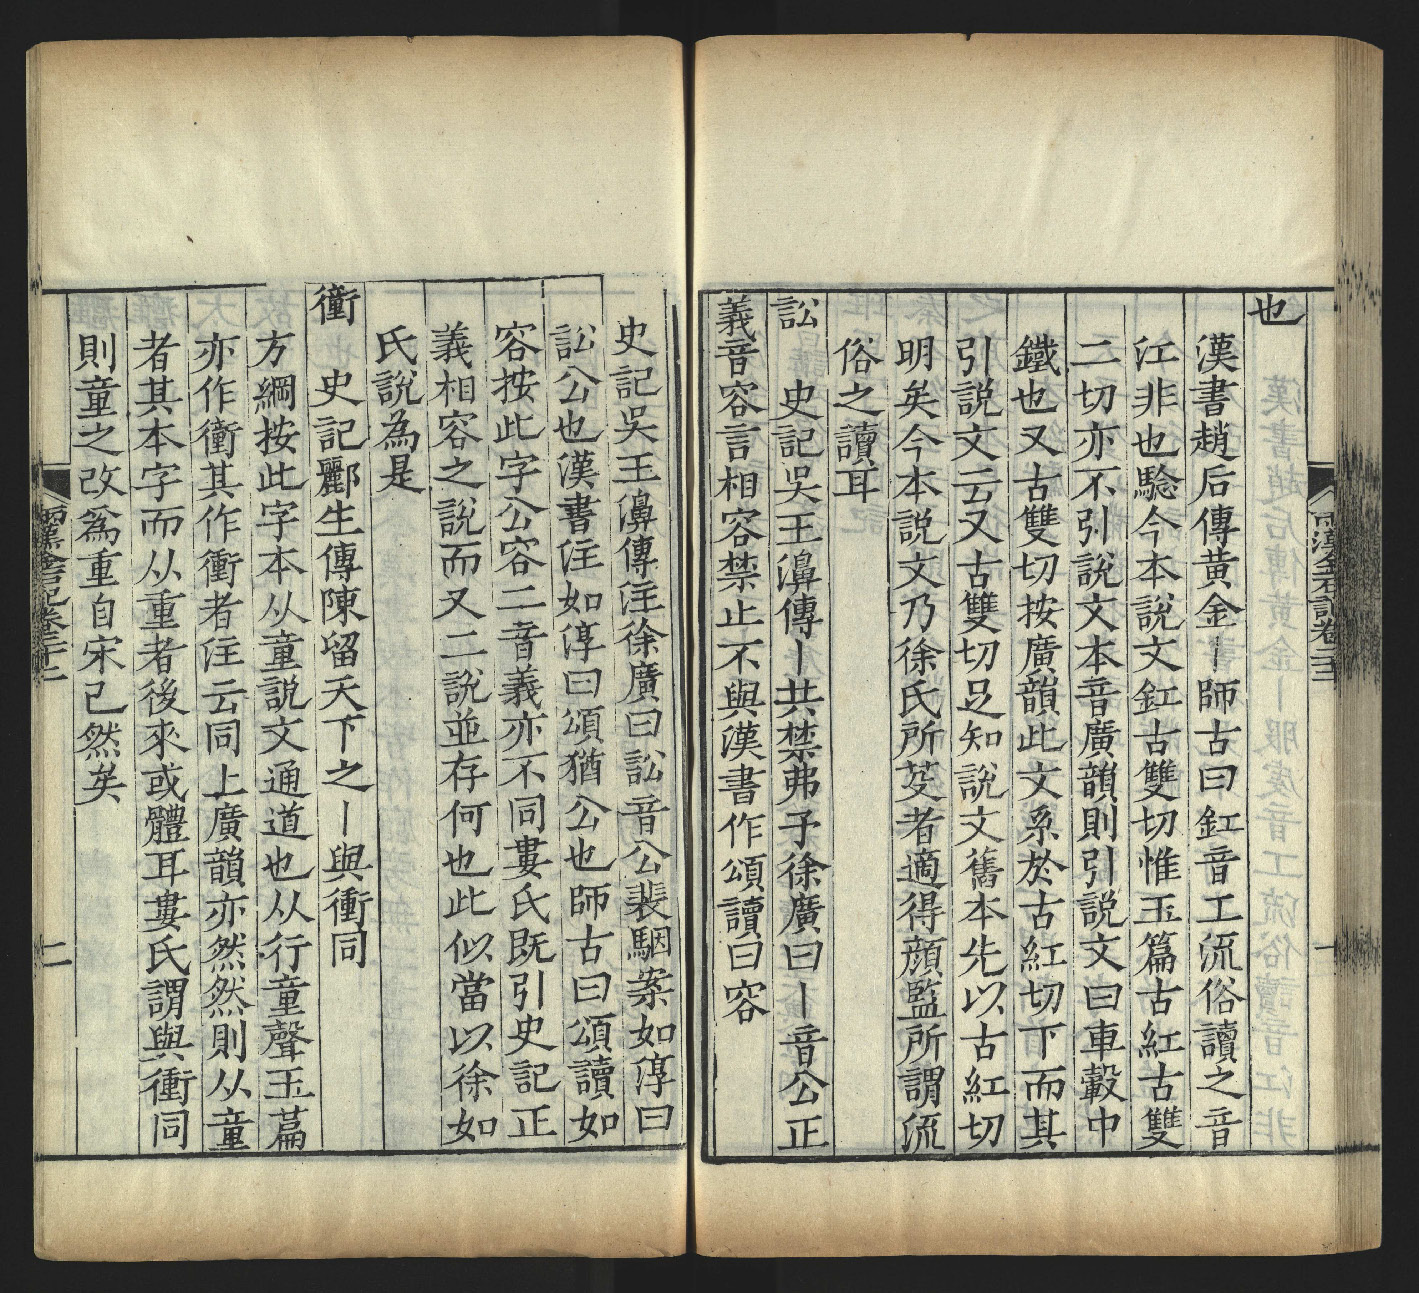 也
漢書趙后傳黃金丨師古曰釭音工流俗讀之音
江非也驗今本說文釭古雙切惟玉篇古紅古雙
二切亦不引說文本音廣韻則引說文曰車轂中
鐵也又古雙切按廣韻此文系於古紅切下而其
引說文云又古雙切足知說文舊本先以古紅切
明矣今本說文乃徐氏所芟者適得顏監所謂流
俗之讀耳
訟　史記吳王濞傳丨共禁弗予徐廣曰丨音公正
義音容言相容禁止不與漢書作頌讀曰容
史記吳王濞傳注徐廣曰訟音公裴駰案如淳曰
訟公也漢書注如淳曰頌猶公也師古曰頌讀如
容按此字公容二音義亦不同婁氏既引史記正
義相容之說而又二說並存何也此似當以徐如
氏說為是
衝　史記酈生傳陳留天下之丨與衝同
方綱按此字本从童說文通道也从行童聲玉篇
亦作衝其作衝者注云同上廣韻亦然然則从童
者其本字而从重者後來或體耳婁氏謂與衝同
則童之改為重自宋已然矣
兩漢金石記卷二十二
一
二